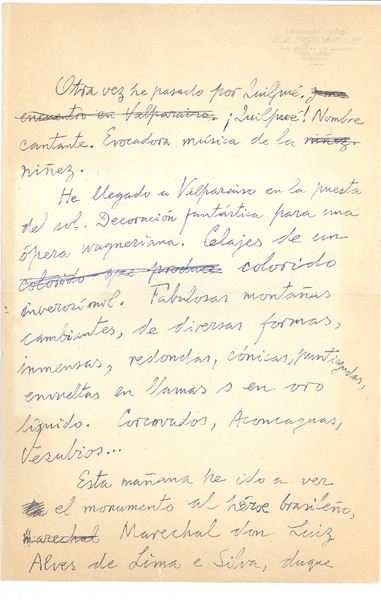 Otra vez he pasado por Quilpué,
encuentro en Valparaíso. ¡Quilpué! Nombre
cantante. Evocadora música de la niñez.
niñez.
He llegado a Valparaíso en la puesta
del sol. Decoración fantástica para una
ópera wagneriana. Celajes de un
colorido que produce colorido
inverosímil. Fabulosas montañas
cambiantes, de diversas formas,
inmensas, redondas, cónicas, puntiagudas,
envueltas en llamas s en oro
líquido. Corcovados, Aconcaguas,
Vesubios...
Esta mañana he ido a ver
el monumento al héroe brasileño,
marechal Marechal don Luiz
Alves de Lima e Silva, duque